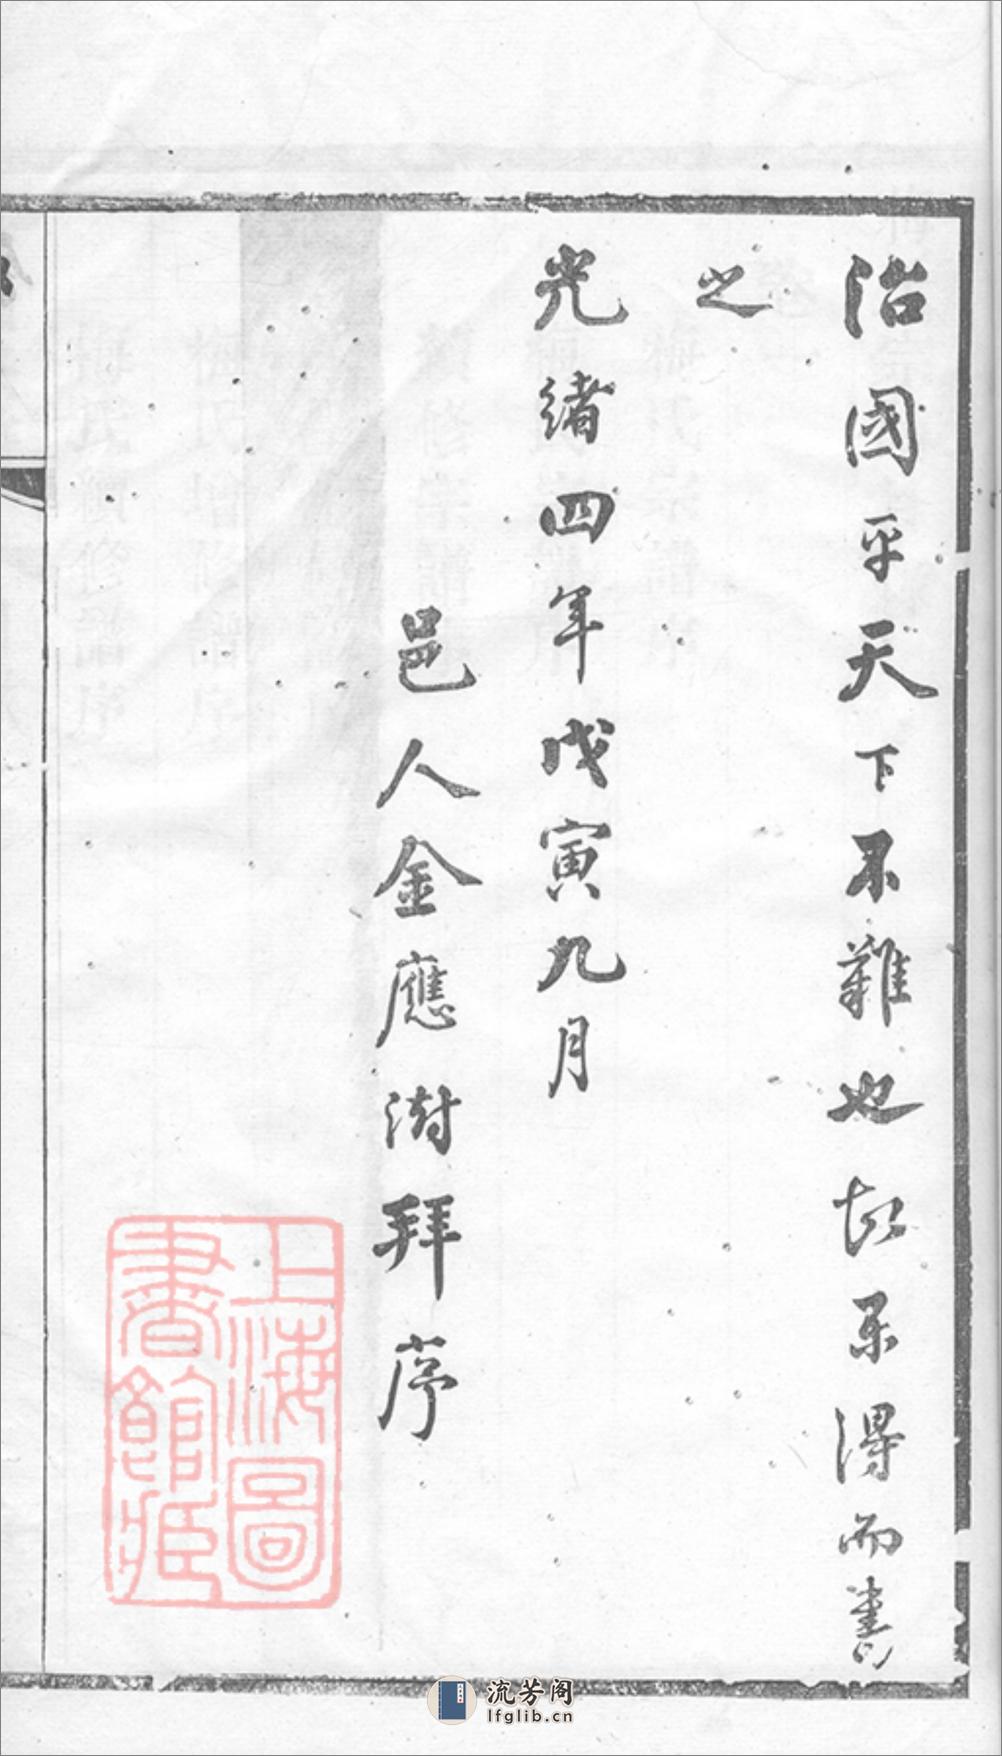 治國平天下不難也故樂得而書
之
光緒四年戊寅九月
邑人金應澍拜序
上海圖
書館藏
流芳阁
lfglib.cn